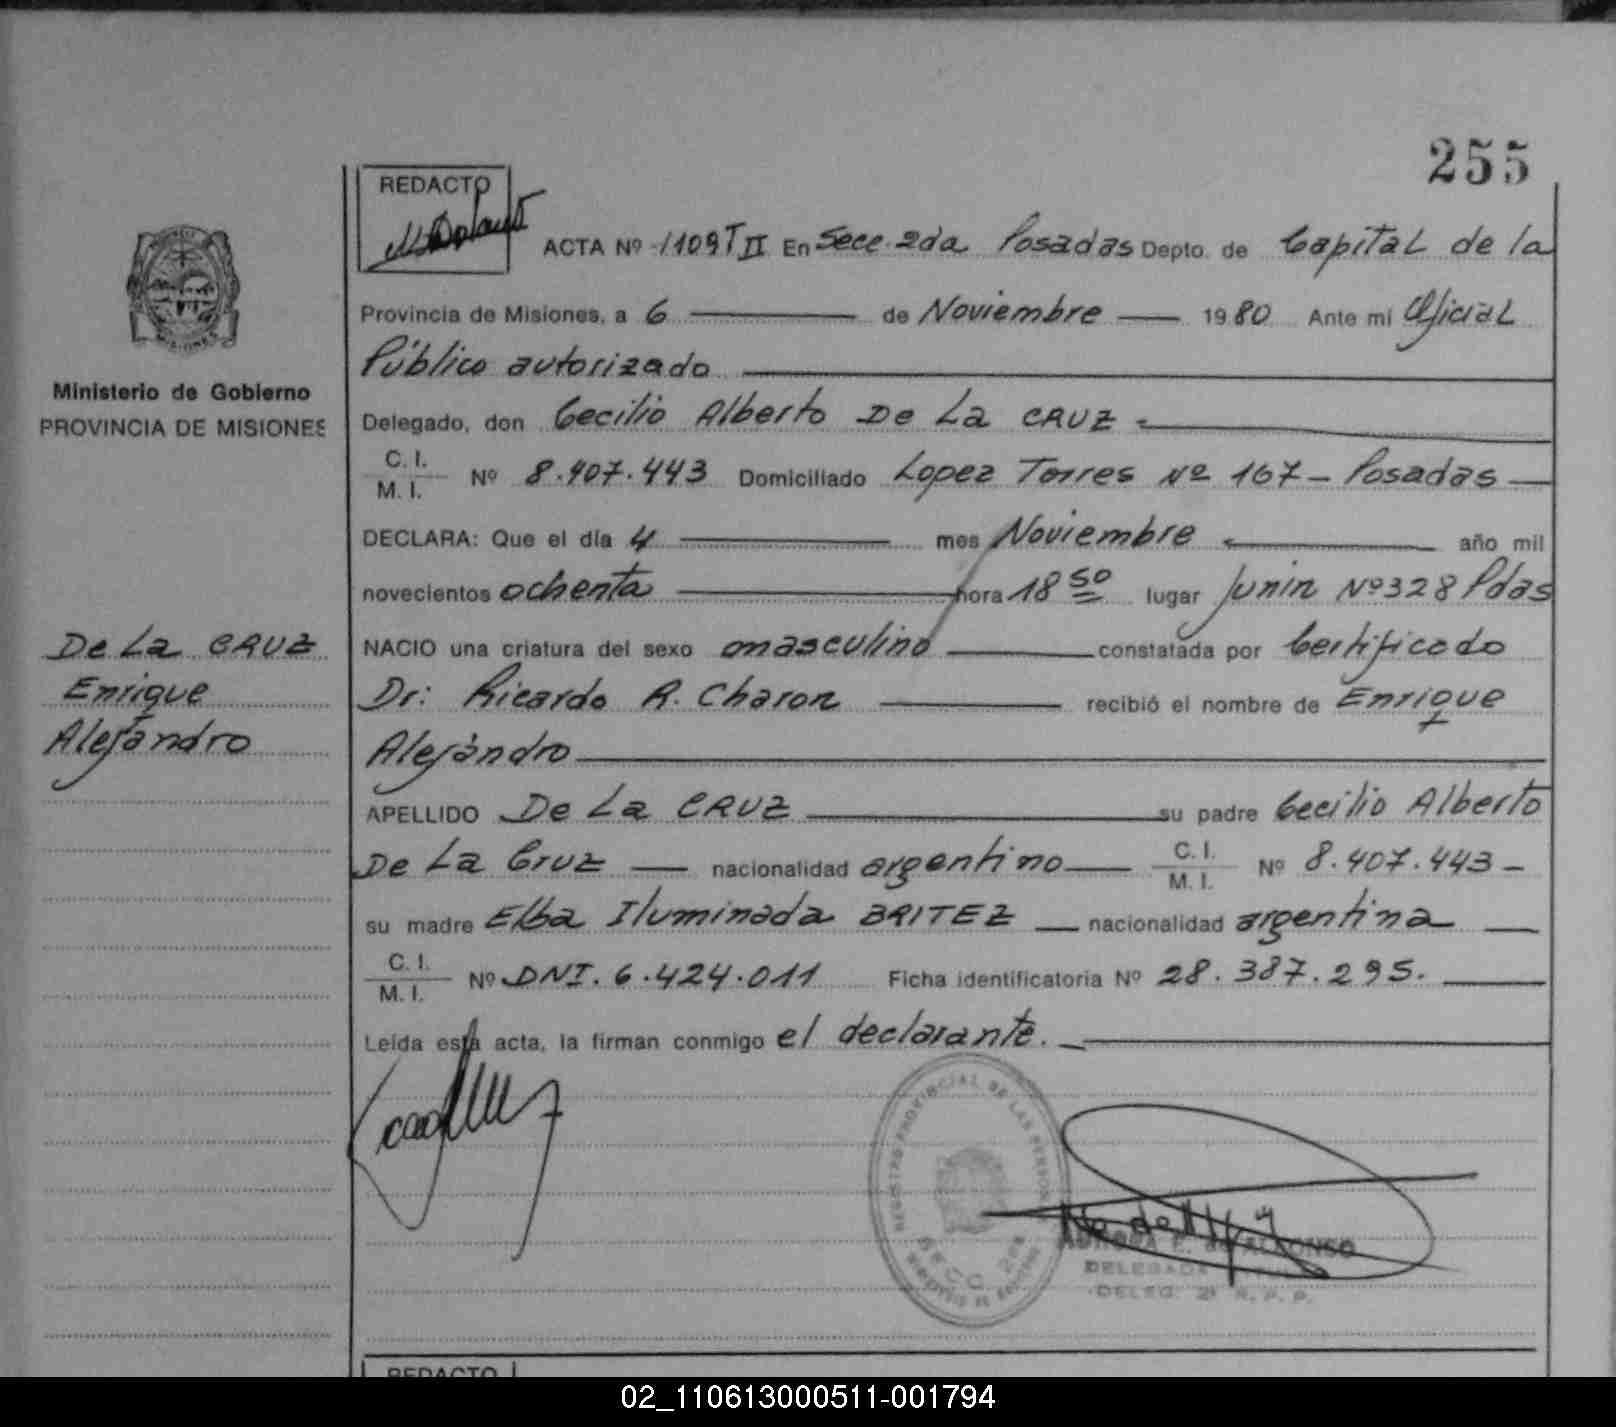 255
REDACTO
ACTA Nº 1109 T II En Secc. 2da Posadas Depto. de Capital de la
Provincia de Misiones, a 6 de Noviembre 1980 Ante mi Oficial
Público autorizado
Delegado, don Cecilio Alberto De La CRUZ
C. I.
M. I. Nº 8.407.443 Domiciliado Lopez Torres Nº 167 - Posadas
DECLARA: Que el día 4 mes Noviembre año mil
novecientos ochenta hora 18 50 lugar Junin Nº 328 Pdas
NACIO una criatura del sexo masculino constatada por Certificado
Dr: Ricardo R. Charon recibió el nombre de Enrique
Alejandro
APELLIDO De La CRUZ su padre Cecilio Alberto
De La Cruz nacionalidad argentino C. I. M. I. Nº 8.407.443 -
su madre Elba Iluminada BRITEZ nacionalidad argentina
C. I.
M. I. Nº DNI. 6.424.011 Ficha identificatoria Nº 28.387.295.
Leída esta acta, la firman conmigo el declarante.
Ministerio de Gobierno
PROVINCIA DE MISIONES
De La CRUZ
Enrique
Alejandro
REGISTRO PROVINCIAL DE LAS PERSONAS
SECC. 2da
AURORA E. de ALFONSO
DELEGADA
DELEG. 2ª R. P. P.
REDACTO
02_110613000511-001794